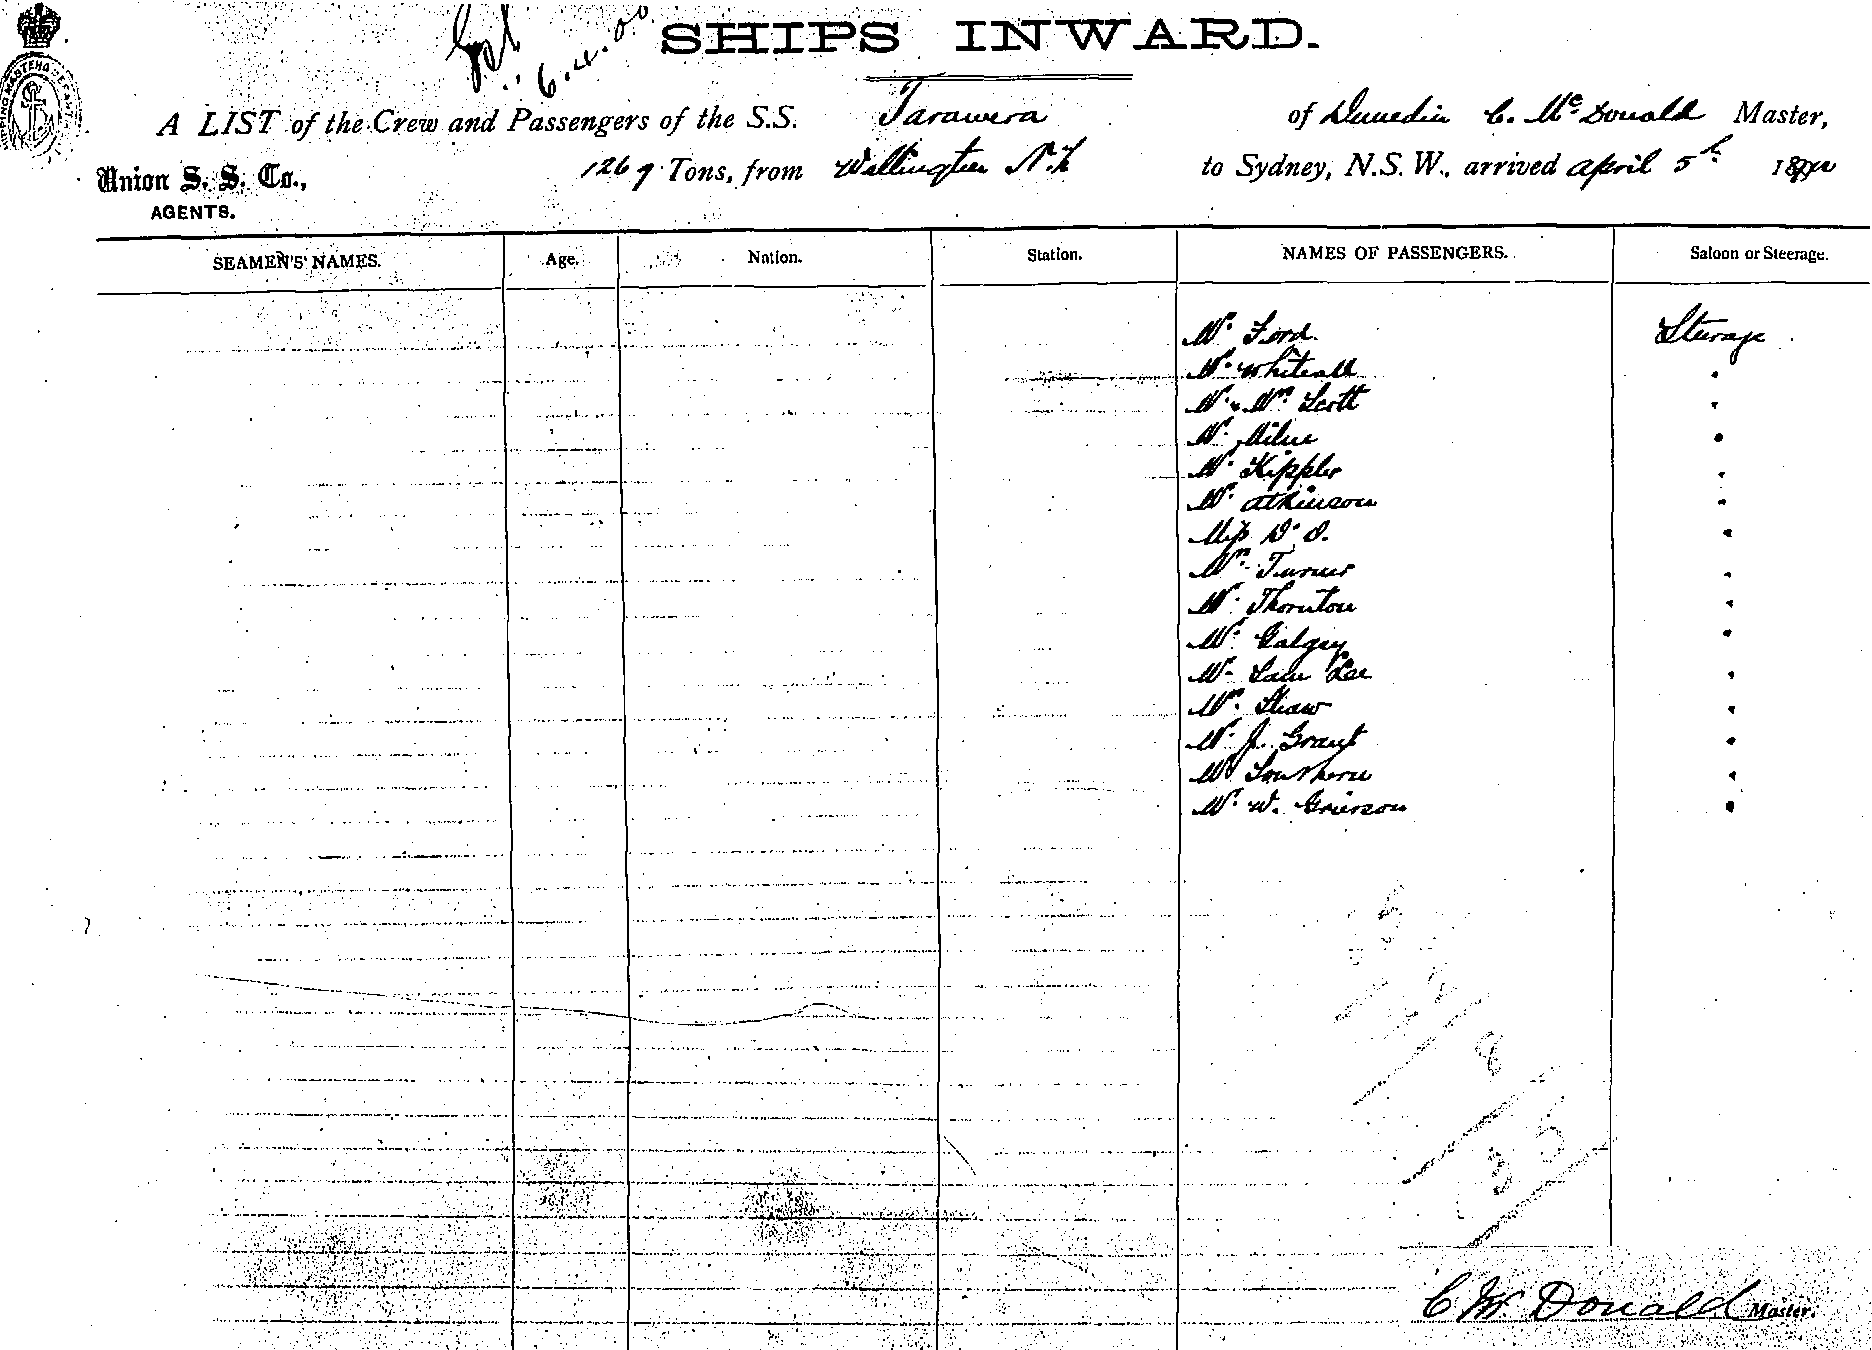 6.4.00
SHIPS INWARD.
A LIST of the Crew and Passengers of the S.S. Tarawera of Dunedin C. McDonald Master,
Union S. S. Co., 1269 Tons, from Wellington N.Z to Sydney, N.S.W., arrived April 5th
AGENTS.
SEAMEN'S' NAMES. Age. Nation. Station. NAMES OF PASSENGERS. Saloon or Steerage.
Mr Ford Steerage
Mr Whiteall "
Mr & Mrs Scott "
Mr Milne "
Mr Kippler "
Mr Atkinson "
Miss Do. "
Mrs Turner "
Mr Thornton "
Mr Galgey "
Mr Lee "
Mrs Shaw "
Mr J. Grant "
Mr Southern "
Mr W. Grierson "
8
35
C McDonald Master.